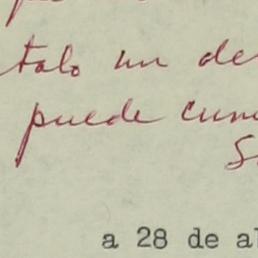 talo un de
puede cum
S
a 28 de al